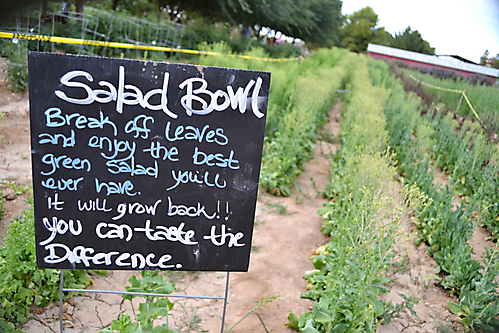 Salad Bowl
Break off leaves
and enjoy the best
green salad you'll
ever have.
it will grow back!!
you can taste the
Difference.